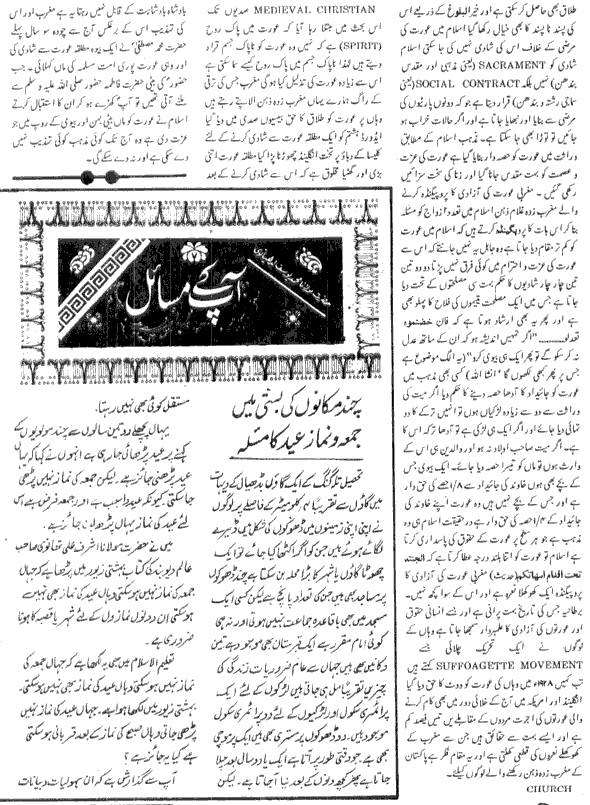 طلاق بھی حاصل کر سکتی ہے اور خیر البلوغ کے ذریعے اس
کی پسند نا پسند کا بھی خیال رکھا گیا اسلام میں عورت کی
مرضی کے خلاف اس کی شادی نہیں کی جا سکتی اسلام
شادی کو SACRAMENT (یعنی مذہبی اور مقدس
بندھن) نہیں بلکہ SOCIAL CONTRACT (یعنی
سماجی رشتہ و بندھن) قرار دیتا ہے جو کہ دونوں پارٹیوں کی
مرضی سے بنایا اور نبھایا جاتا ہے اور اگر حالات خراب ہو
جائیں تو توڑا بھی جا سکتا ہے۔ مذہب اسلام کے مطابق
وراثت میں عورت کو حصہ دار بنایا گیا ہے عورت کی عزت
و عصمت کو بہت مقدس جانا گیا اور زنا کی سخت سزائیں
رکھی گئیں۔ مغربی عورت کی آزادی کا پروپیگنڈہ کرنے
والے مغرب زدہ غلام ذہن اسلام میں تعدد ازواج کو مسئلہ
بنا کر اس بات کا پروپیگنڈہ کرتے ہیں کہ اسلام میں عورت
کو کم تر مقام دیا جاتا ہے وہ جاہل یہ نہیں جانتے کہ اس سے
عورت کی عزت و احترام میں کوئی فرق نہیں پڑتا دو دو تین
تین چار چار شادیوں کا حکم بہت سی مصلحتوں کے تحت دیا
جاتا ہے جس میں ایک مصلحت یتیموں کی فلاح کا پہلو بھی
ہے اور پھر یہ بھی ارشاد ہوتا ہے کہ فان خفتموہ
تعدلو......"اگر تمہیں اندیشہ ہو کہ ان کے ساتھ عدل
نہ کر سکو گے تو پھر ایک ہی بیوی کرو" (یہ الگ موضوع ہے
جس پر پھر کبھی لکھوں گا انشا اللہ) کسی بھی مذہب میں
عورت کو جائیداد کا آدھا حصہ دینے کا حکم دیا اگر میت کی
وراثت سے دو سے زیادہ لڑکیاں ہوں تو انہیں ترکے کا دو
تہائی دیا جائے اور اگر ایک ہی لڑکی ہے تو آدھا ترکہ اس کا
ہے۔ اگر میت صاحب اولاد نہ ہو اور والدین ہی اس کے
وارث ہوں تو ماں کو تیسرا حصہ دیا جائے۔ ایک بیوی جس
کے بچے بھی ہوں خاوند کی جائیداد سے ۱/۸ حصے کی حق دار
ہے اور جس کے بچے نہیں ہیں وہ عورت اپنے خاوند کی
جائیداد کے ۱/۴ حصہ کی حق دار ہے درحقیقت اسلام ہی وہ
مذہب ہے جو ہر سطح پر عورت کے حقوق کی پاسداری کرتا
ہے اسلام تو عورت کو اتنا بلند درجہ عطا کرتا ہے کہ الجنتہ
تحت اقدام امہاتکم (حدیث) مغربی عورت کی آزادی کا
پروپیگنڈہ ایک کھوکھلا نعرہ ہے اور اس کے سوا کچھ نہیں۔
برطانیہ جس کی تاریخ بہت پرانی ہے اور جسے انسانی حقوق
اور عورتوں کی آزادی کا علمبردار سمجھا جاتا ہے وہاں کے
لوگوں نے ایک تحریک چلائی جسے
SUFFOAGETTE MOVEMENT کہتے ہیں
تب کہیں میں وہاں کی عورت کو ووٹ کا حق دیا گیا
انگلینڈ اور امریکہ میں آج کے خلائی دور میں بھی کام کرنے
والی عورتوں کی اجرت مردوں کے مقابلے میں فیصد کم
ہے اور ایسے بہت سے حقائق ہیں جن سے عورت کے
کھوکھلے نعروں کی قطعی کھلتی ہے اور یہ مقام فکر ہے پاکستان
کے مغرب زدہ ذہن رکھنے والے لوگوں کیلئے۔
CHURCH
MEDIEVAL CHRISTIAN صدیوں تک
اس بحث میں مبتلا رہا آیا کہ عورت میں پاک روح
(SPIRIT) ہے کہ نہیں وہ عورت کو ناپاک جسم قرار
دیتے ہیں لہٰذا ناپاک جسم میں پاک روح کیسے سما سکتی ہے
اس سے زیادہ عورت کی تذلیل کیا ہو گی مغرب جس کی ترقی
کے راگ ہمارے یہاں مغرب زدہ ذہن الاپتے رہتے ہیں
وہاں پر عورت کو طلاق کا حق بیسویں صدی میں دیا گیا
ایڈورڈ ہشتم کو ایک مطلقہ عورت سے شادی کرنے کے لئے
کلیسا کے دباؤ پر تخت انگلینڈ چھوڑنا پڑا گیا مطلقہ عورت اتنی
بڑی اور گھٹیا مخلوق ہے کہ اس سے شادی کرنے کے بعد
بادشاہ بادشاہت کے قابل نہیں رہتا یہ ہے مغرب اور اس
کی تہذیب اس کے برعکس آج سے چودہ سو سال پہلے
حضرت محمد مصطفیٰ نے ایک بیوہ مطلقہ عورت سے شادی کی
اور وہی عورت پوری امت مسلمہ کی ماں کہلائی۔ جب
حضورؐ کی بیٹی حضرت فاطمہ حضور صلی اللہ علیہ وسلم سے
ملنے آتی تھیں تو آپؐ کھڑے ہو کر ان کا استقبال کرتے
اسلام نے عورت کو ماں بیٹی بہن اور بیوی کے روپ میں جو
عزت دی ہے وہ آج تک کوئی مذہب کوئی تہذیب نہیں
دے سکی ہے اور نہ دے سکے گی۔
آپ کے مسائل
چند مکانوں کی بستی میں
جمعہ و نماز عید کا مسئلہ
تحصیل تلہ گنگ کے ایک گاؤں بڈھیال کے دیہات
میں گاؤں سے تقریباً ہر کلومیٹر کے فاصلے پر لوگوں
نے اپنی اپنی زمینوں میں ڈھوکوں کی شکل میں ڈیرے
لگائے ہوئے ہیں جن کو اگر اکٹھا کیا جائے تو ایک
چھوٹا گاؤں یا شہر کا بڑا محلہ بن سکتا ہے چند ڈھوکوں
پر مساجد بھی ہیں جن کی تعداد پانچ ہے لیکن کسی ایک
مسجد میں بھی باقاعدہ جماعت نہیں ہوتی اور نہ ہی
کوئی امام مقرر ہے ایک قبرستان بھی موجود ہے تین
دکانیں بھی ہیں جہاں سے عام ضروریات زندگی کی
چیزیں تقریباً مل ہی جاتی ہیں لڑکوں کے لئے ایک
پرائمری سکول اور لڑکیوں کے لئے دو پرائمری سکول
موجود ہیں۔ دو ڈھوکوں پر مستری بھی ہیں ایک پر موچی
بھی ہے جو وقتی طور پر آتا ہے ایک یا دو سال بعد چلا
جاتا ہے پھر کچھ دنوں کے بعد نیا آ جاتا ہے۔ لیکن
مستقل کوئی بھی نہیں رہتا۔
یہاں پچھلے دو تین سالوں سے چند مولویوں کے
کہنے پر عید پڑھائی جا رہی ہے انہوں نے کہا کہ یہاں
عید پڑھنی جائز ہے۔ لیکن جمعہ کی نماز نہیں پڑھی
جا سکتی۔ کیونکہ عید واجب ہے اور جمعہ فرض ہے اس
لئے عید کی نماز یہاں پڑھنا جائز ہے۔
میں نے حضرت مولانا اشرف علی تھانوی صاحب
عالم دیوبند کی کتاب بہشتی زیور میں پڑھا ہے کہ جہاں
جمعہ کی نماز نہیں ہو سکتی وہاں عید کی نماز بھی نہیں
ہو سکتی ان دونوں نماز دل کے لئے شہر یا قصبہ کا ہونا
ضروری ہے۔
تعلیم الاسلام میں بھی یہ لکھا ہے کہ جہاں جمعہ کی
نماز نہیں ہو سکتی وہاں عید کی نماز بھی نہیں ہو سکتی۔
بہشتی زیور میں لکھا ہوا ہے۔ جہاں عید کی نماز نہیں
پڑھی جاتی وہاں صبح کی نماز کے بعد قربانی ہو سکتی
ہے کیا یہ جائز ہے؟
آپ سے گذارش ہے کہ ان سہولیات دیہات